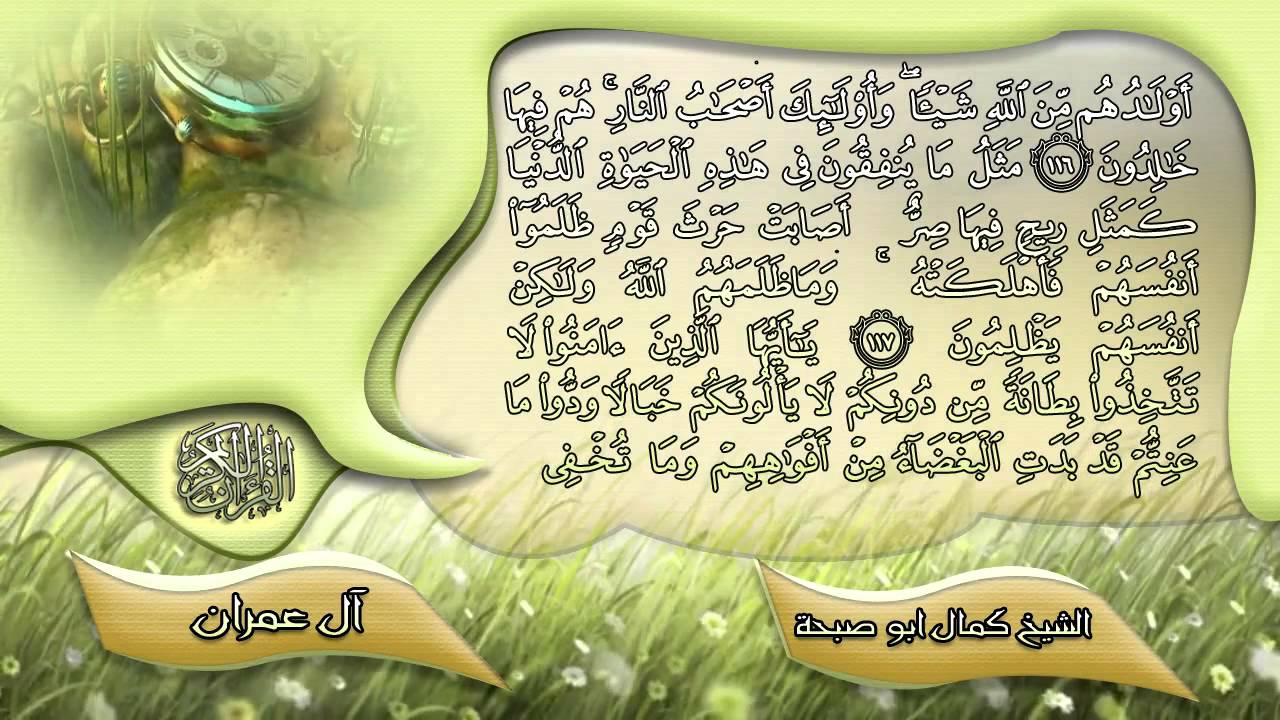 أَوْلَـٰدُهُم مِّنَ ٱللَّهِ شَيْـًٔا ۖ وَأُو۟لَـٰٓئِكَ أَصْحَـٰبُ ٱلنَّارِ ۚ هُمْ فِيهَا
خَـٰلِدُونَ ١١٦ مَثَلُ مَا يُنفِقُونَ فِى هَـٰذِهِ ٱلْحَيَوٰةِ ٱلدُّنْيَا
كَمَثَلِ رِيحٍ فِيهَا صِرٌّ أَصَابَتْ حَرْثَ قَوْمٍ ظَلَمُوٓا۟
أَنفُسَهُمْ فَأَهْلَكَتْهُ ۚ وَمَا ظَلَمَهُمُ ٱللَّهُ وَلَـٰكِنْ
أَنفُسَهُمْ يَظْلِمُونَ ١١٧ يَـٰٓأَيُّهَا ٱلَّذِينَ ءَامَنُوا۟ لَا
تَتَّخِذُوا۟ بِطَانَةً مِّن دُونِكُمْ لَا يَأْلُونَكُمْ خَبَالًا وَدُّوا۟ مَا
عَنِتُّمْ قَدْ بَدَتِ ٱلْبَغْضَآءُ مِنْ أَفْوَٰهِهِمْ وَمَا تُخْفِى
القرءان الكريم
آل عمران
الشيخ كمال ابو صبحة